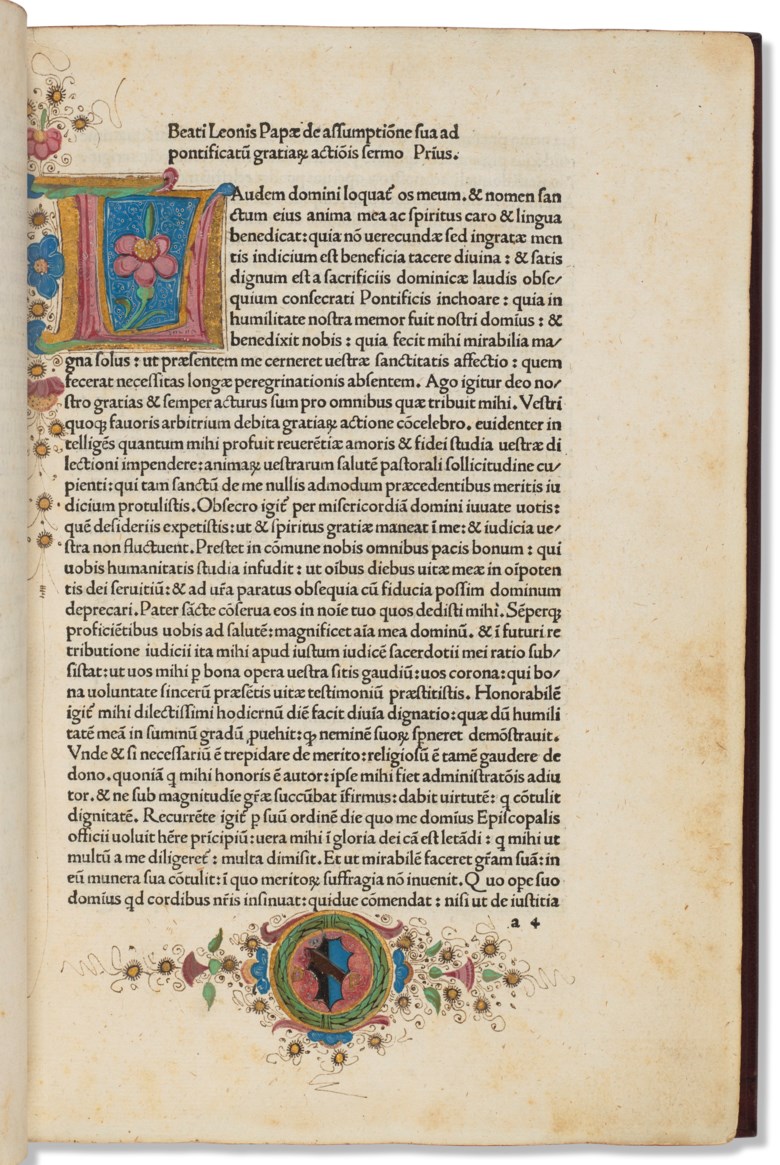 Beati Leonis Papæ de aſſumptiōne ſua ad
pontificatū gratiaꝝ actiōis ſermo Prius.
LAudem domini loquat᷑ os meum. & nomen ſan
ctum eius anima mea ac ſpiritus caro & lingua
benedicat: quia nō uerecundæ ſed ingratæ men
tis indicium eſt beneficia tacere diuina : & ſatis
dignum eſt a ſacrificiis dominicæ laudis obſe/
quium conſecrati Pontificis inchoare : quia in
humilitate noſtra memor fuit noſtri domīus : &
benedixit nobis : quia fecit mihi mirabilia ma/
gna ſolus : ut præſentem me cerneret ueſtræ ſanctitatis affectio : quem
fecerat neceſſitas longæ peregrinationis abſentem. Ago igitur deo no/
ſtro gratias & ſemper acturus ſum pro omnibus quæ tribuit mihi. Veſtri
quoqꝫ fauoris arbitrium debita gratiaꝝ actione cōcelebro. euidenter in
telligēs quantum mihi profuit reuerētiæ amoris & fidei ſtudia ueſtræ di
lectioni impendere: animaꝝ ueſtrarum ſalutē paſtorali ſollicitudine cu/
pienti: qui tam ſanctū de me nullis admodum præcedentibus meritis iu
dicium protuliſtis. Obſecro igit᷑ per miſericordiā domini iuuate uotis:
quē deſideriis expetiſtis: ut & ſpiritus gratiæ maneat ī me: & iudicia ue/
ſtra non fluctuent. Preſtet in cōmune nobis omnibus pacis bonum : qui
uobis humanitatis ſtudia infudit : ut oībus diebus uitæ meæ in oīpoten
tis dei ſeruitiū: & ad ur̄a paratus obſequia cū fiducia poſſim dominum
deprecari. Pater ſācte cōſerua eos in noīe tuo quos dediſti mihi. Sēperqꝫ
proficiētibus uobis ad ſalutē: magnificet aīa mea dominū. & ī futuri re
tributione iudicii ita mihi apud iuſtum iudicē ſacerdotii mei ratio ſub/
ſiſtat: ut uos mihi ꝑ bona opera ueſtra ſitis gaudiū: uos corona: qui bo/
na uoluntate ſincerū præſētis uitæ teſtimoniū præſtitiſtis. Honorabilē
igit᷑ mihi dilectiſſimi hodiernū diē facit diuīa dignatio: quæ dū humili
tatē meā in ſummū gradū ꝓuehit: ꝙ neminē ſuoꝝ ſꝑneret demōſtrauit.
Vnde & ſi neceſſariū ē trepidare de merito: religioſū ē tamē gaudere de
dono. quoniā q mihi honoris ē autor: ipſe mihi fiet adminiſtratōis adiu
tor. & ne ſub magnitudīe gr̄æ ſuccūbat īfirmus: dabit uirtutē: q cōtulit
dignitatē. Recurrēte igit᷑ ꝑ ſuū ordinē die quo me domīus Epiſcopalis
officii uoluit hēre prīcipiū: uera mihi ī gloria dei cā eſt letādi : q mihi ut
multū a me diligeret᷑ : multa dimiſit. Et ut mirabilē faceret gr̄am ſuā: in
eū munera ſua cōtulit: ī quo meritoꝝ ſuffragia nō inuenit. Quo oꝑe ſuo
domīus qd cordibus nr̄is inſinuat: quidue cōmendat : niſi ut de iuſtitia
a 4